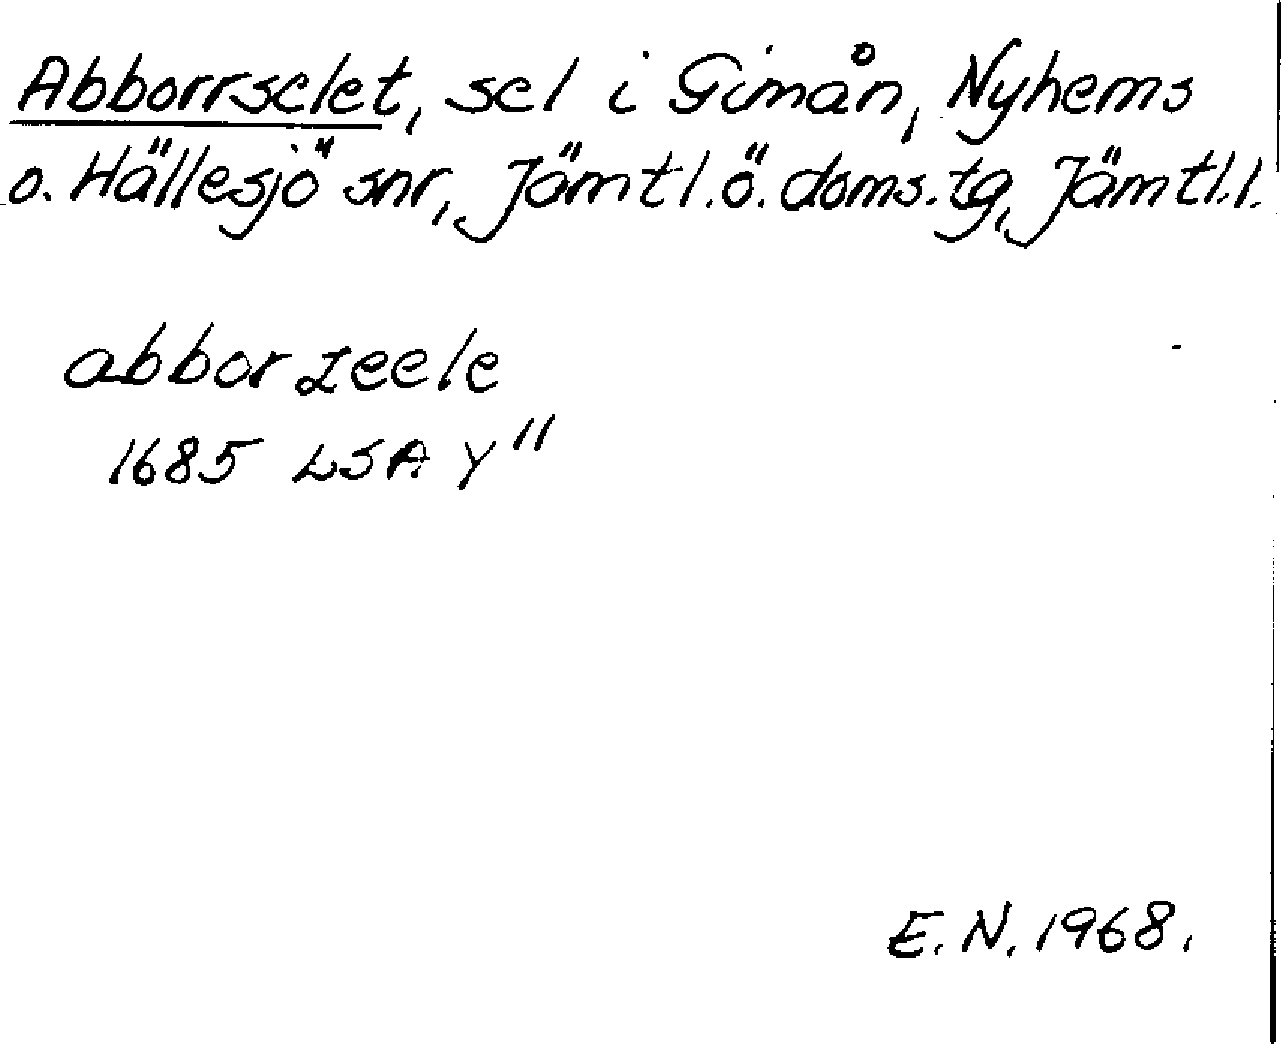 Abborrselet, sel i Gimån, Nyhems
o. Hällesjö snr, Jämtl. ö. doms.tg, Jämtl. l.
abbor zeele
1685 LSA Y"
E. N. 1968.